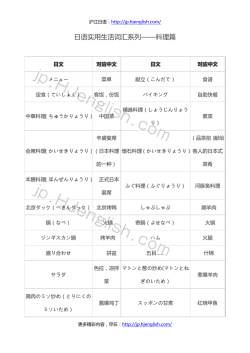 沪江日语：http://jp.hjenglish.com/
日语实用生活词汇系列——料理篇
日文 对应中文 日文 对应中文
メニュー 菜单 献立（こんだて） 食谱
定食（ていしょく） 客饭，份饭 バイキング 自助快餐
中華料理(ちゅうかりょうり) 中国菜 精進料理(しょうじんりょうり) 素菜
会席料理(かいせきりょうり) （日本料理的一种） 懐石料理(かいせきりょうり) （品茶前)客人的日本式菜肴
本膳料理(ほんぜんりょうり) 正式日本宴席 ふぐ料理(ふぐりょうり) 河豚鱼料理
北京ダック(ぺきんダック) 北京烤鸭 しゃぶしゃぶ 涮羊肉
鍋(なべ) 火锅 寄鍋(よせなべ) 火锅
ジンギスカン鍋 烤羊肉 ハム 火腿
盛り合わせ 拼盘 五目… 什锦
サラダ 色拉，凉拌菜 マトンと葱の炒め(マトンとねぎのいため) 葱爆羊肉
鶏肉のミソ炒め(とりにくのミソいため) 酱爆鸡丁 スッポンの甘煮 红烧甲鱼
更多精彩内容，尽在：http://jp.hjenglish.com/
jp.Hjenglish.com
jp.Hjenglish.com